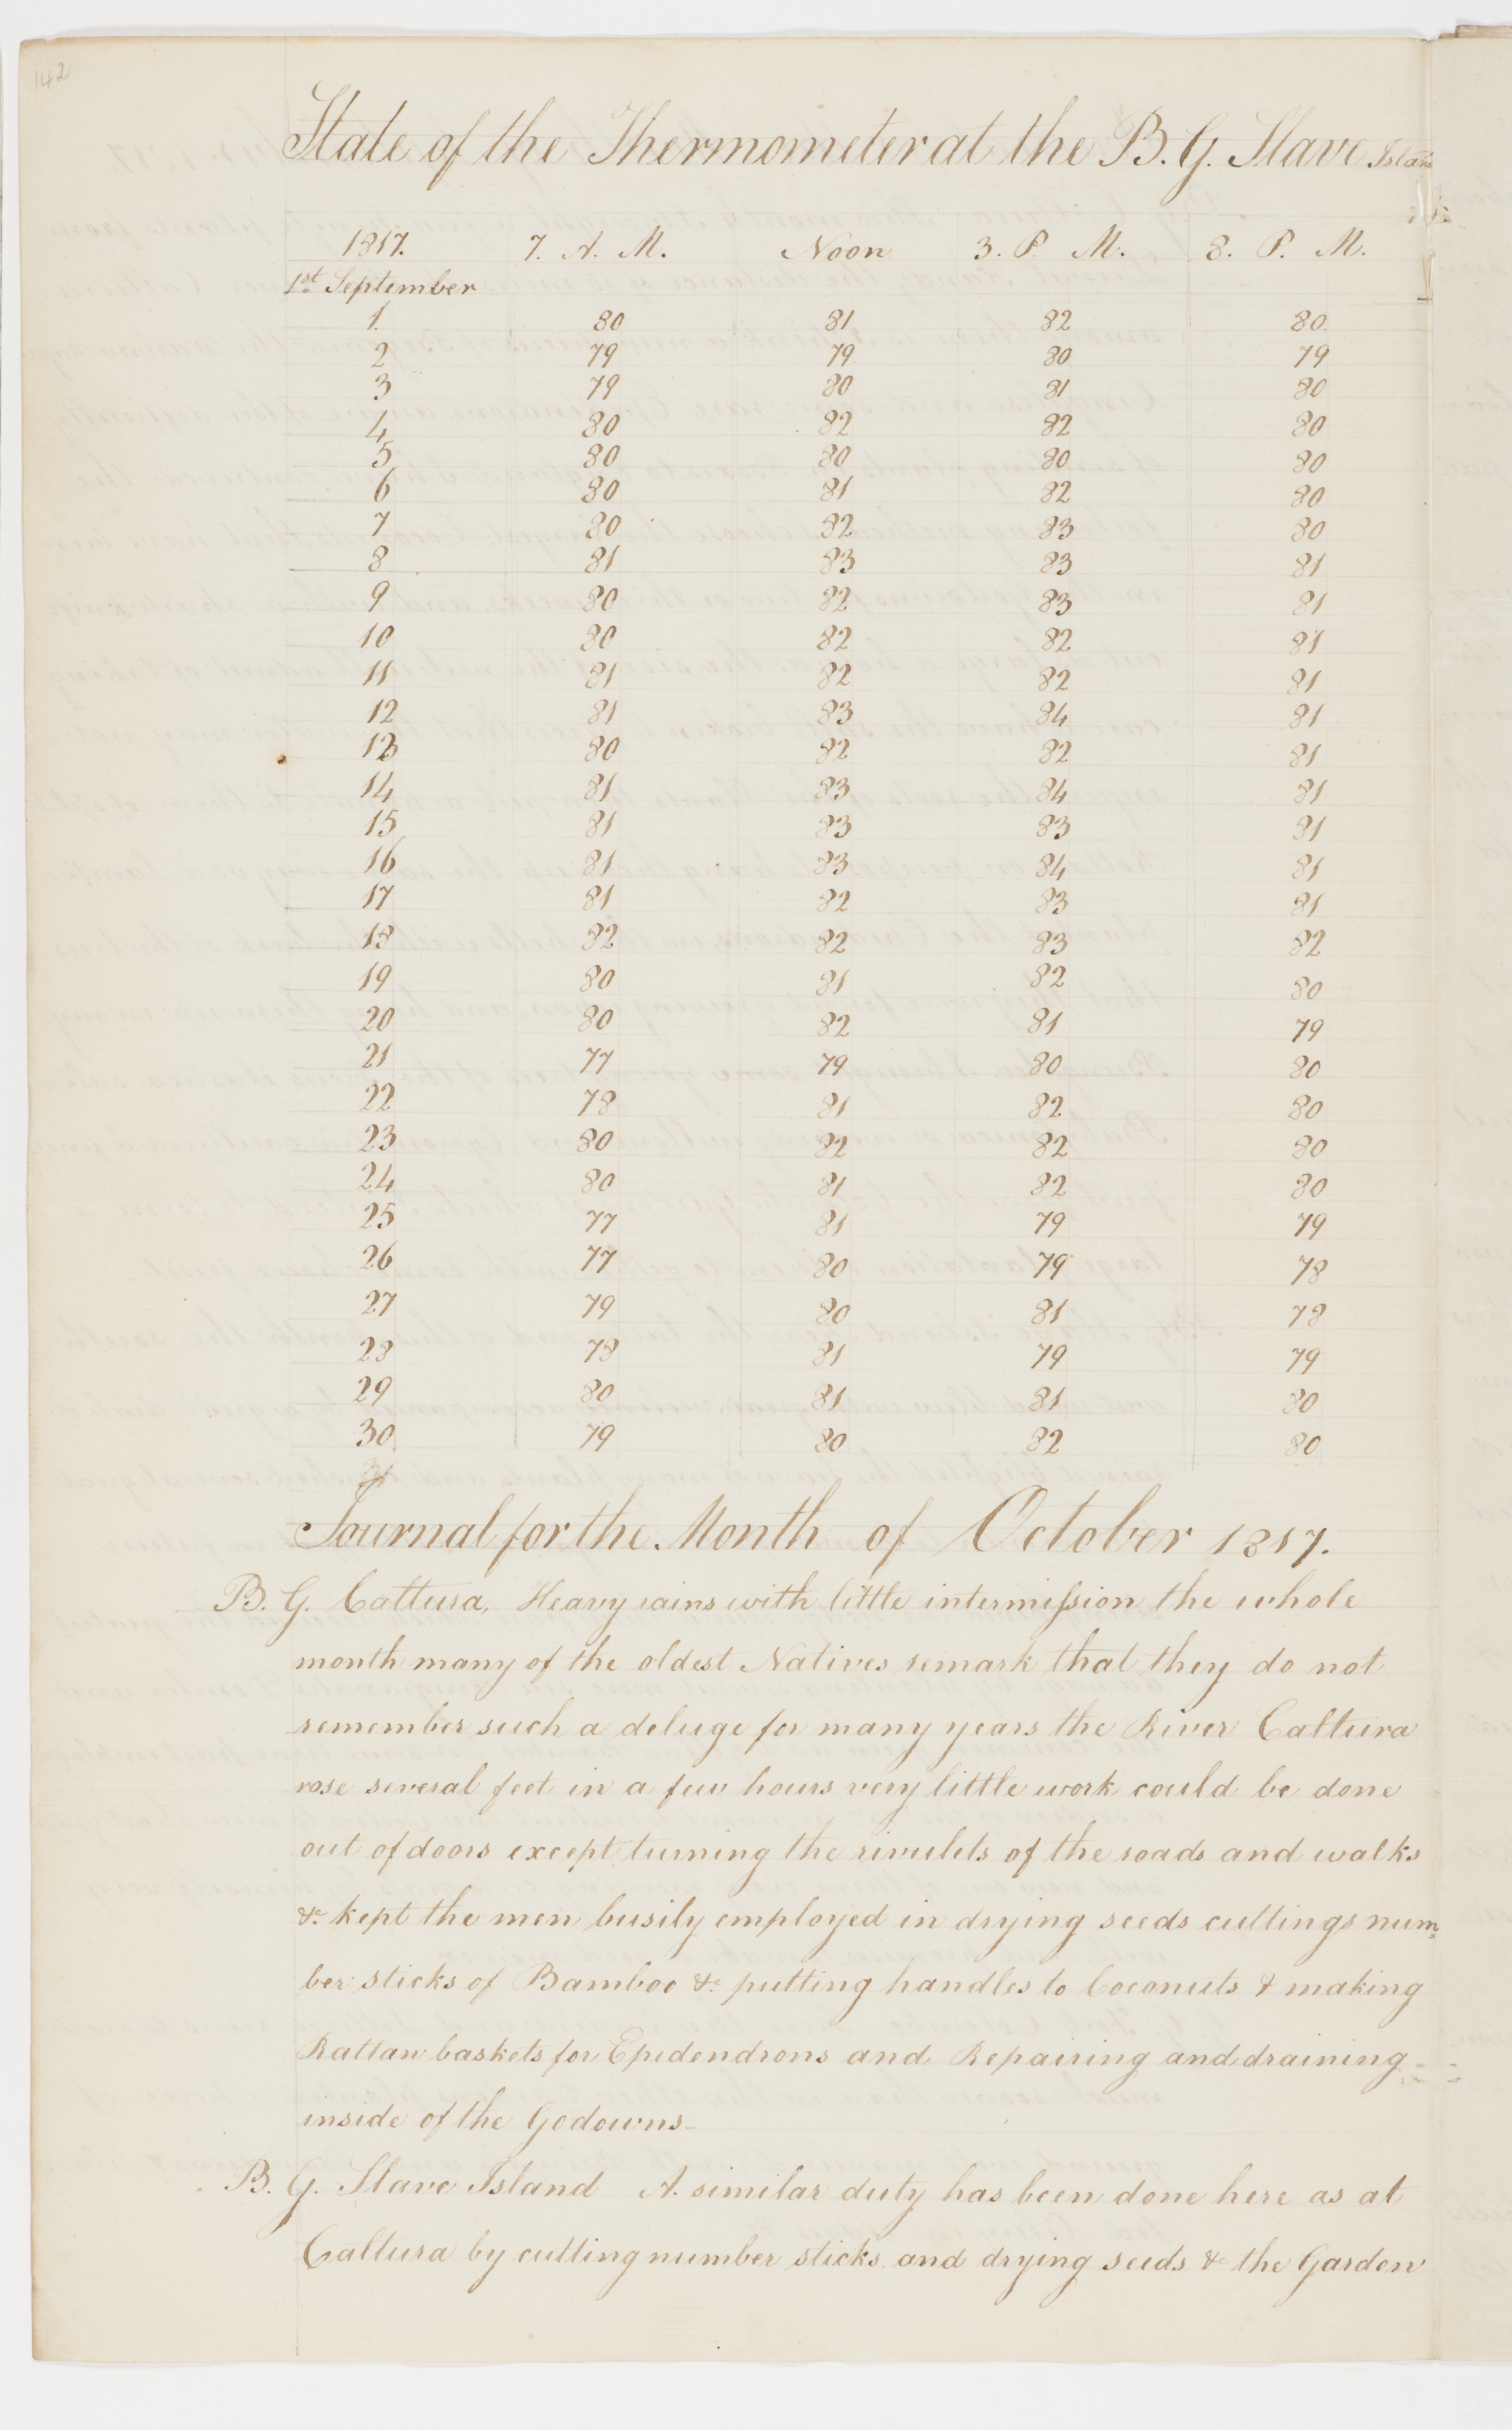 142
State of the Thermometer at the B. G. Slave Island
1817. 7. A. M. Noon 3. P. M. 8. P. M.
1st September
1. 80 81 82 80
2 79 79 80 79
3 79 80 81 80
4 80 82 82 80
5 80 80 80 80
6 80 81 82 80
7 80 82 83 80
8 81 83 83 81
9 80 82 83 81
10 80 82 82 81
11 81 82 82 81
12 81 83 84 81
13 80 82 82 81
14 81 83 84 81
15 81 83 83 81
16 81 83 84 81
17 81 82 83 81
18 82 82 83 82
19 80 81 82 80
20 80 82 81 79
21 77 79 80 80
22 78 81 82 80
23 80 82 82 80
24 80 81 82 80
25 77 81 79 79
26 77 80 79 78
27 79 80 81 78
28 78 81 79 79
29 80 81 81 80
30 79 80 82 80
Journal for the Month of October 1817.
B. G. Caltura, Heavy rains with little intermission the whole
month many of the oldest Natives remark that they do not
remember such a deluge for many years the River Caltura
rose several feet in a few hours very little work could be done
out of doors except turning the rivulets of the roads and walks
&c kept the men busily employed in drying seeds cuttings num=
ber sticks of Bamboo &c putting handles to Coconuts & making
Rattan baskets for Epidendrons and Repairing and draining
inside of the Godowns
B. G. Slave Island A. similar duty has been done here as at
Caltura by cutting number sticks and drying seeds &c the Garden